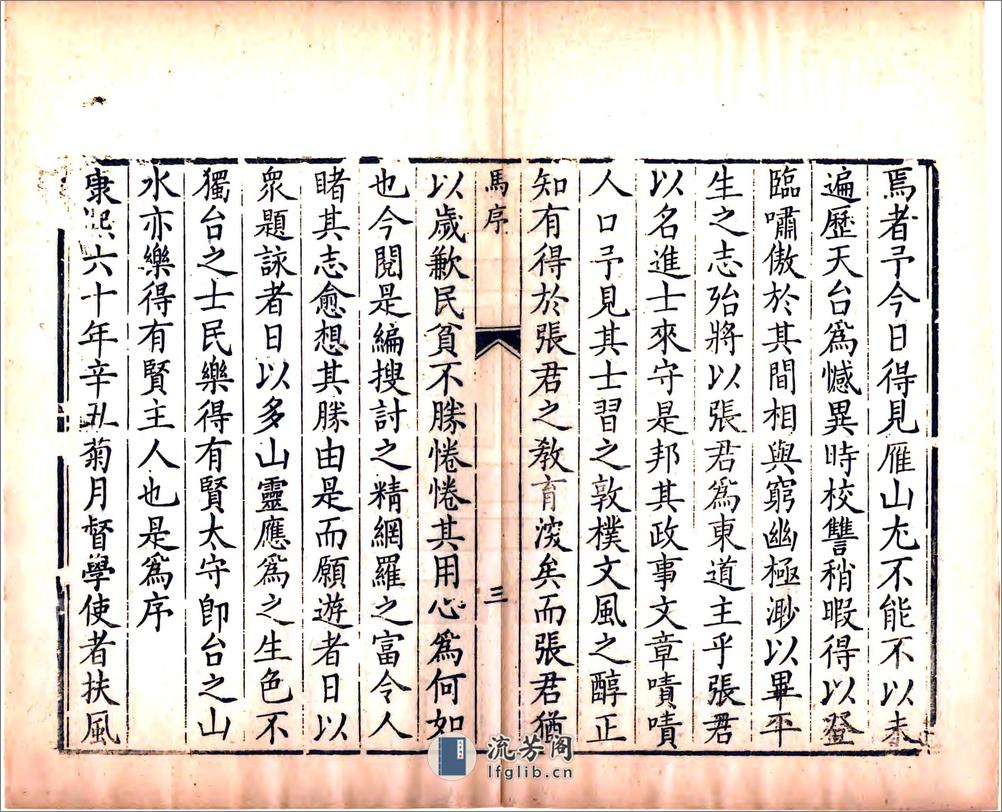 焉者予今日得見雁山尢不能不以未
遍歷天台爲憾異時校讐稍暇得以登
臨嘯傲於其間相與窮幽極渺以畢平
生之志殆將以張君爲東道主乎張君
以名進士來守是邦其政事文章嘖嘖
人口予見其士習之敦樸文風之醇正
知有得於張君之敎育深矣而張君猶
馬序
三
以歲歉民貧不勝惓惓其用心爲何如
也今閱是編搜討之精網羅之富令人
睹其志愈想其勝由是而願遊者日以
衆題詠者日以多山靈應爲之生色不
獨台之士民樂得有賢太守卽台之山
水亦樂得有賢主人也是爲序
康熙六十年辛丑菊月督學使者扶風
流芳阁
lfglib.cn